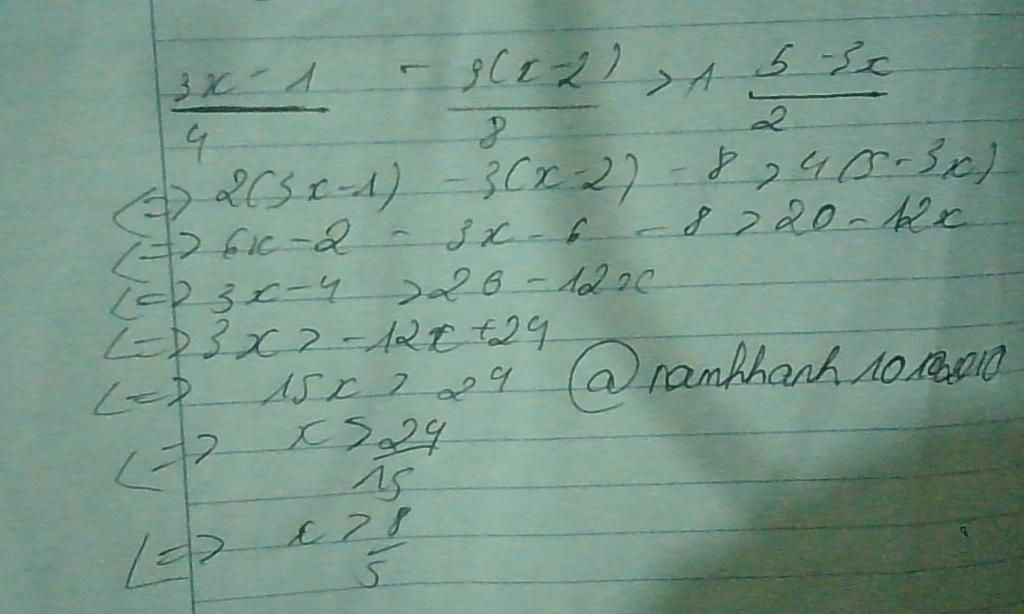 (3x - 1)/4 - 3(x-2)/8 > 1 (5-3x)/2
<=> 2(3x-1) - 3(x-2) - 8 > 4(5-3x)
<=> 6x-2 - 3x-6 - 8 > 20-12x
<=> 3x-4 > 20-12x
<=> 3x > -12x+24
<=> 15x > 24
@namkhanh
<=> x > 24/15
<=> x > 8/5